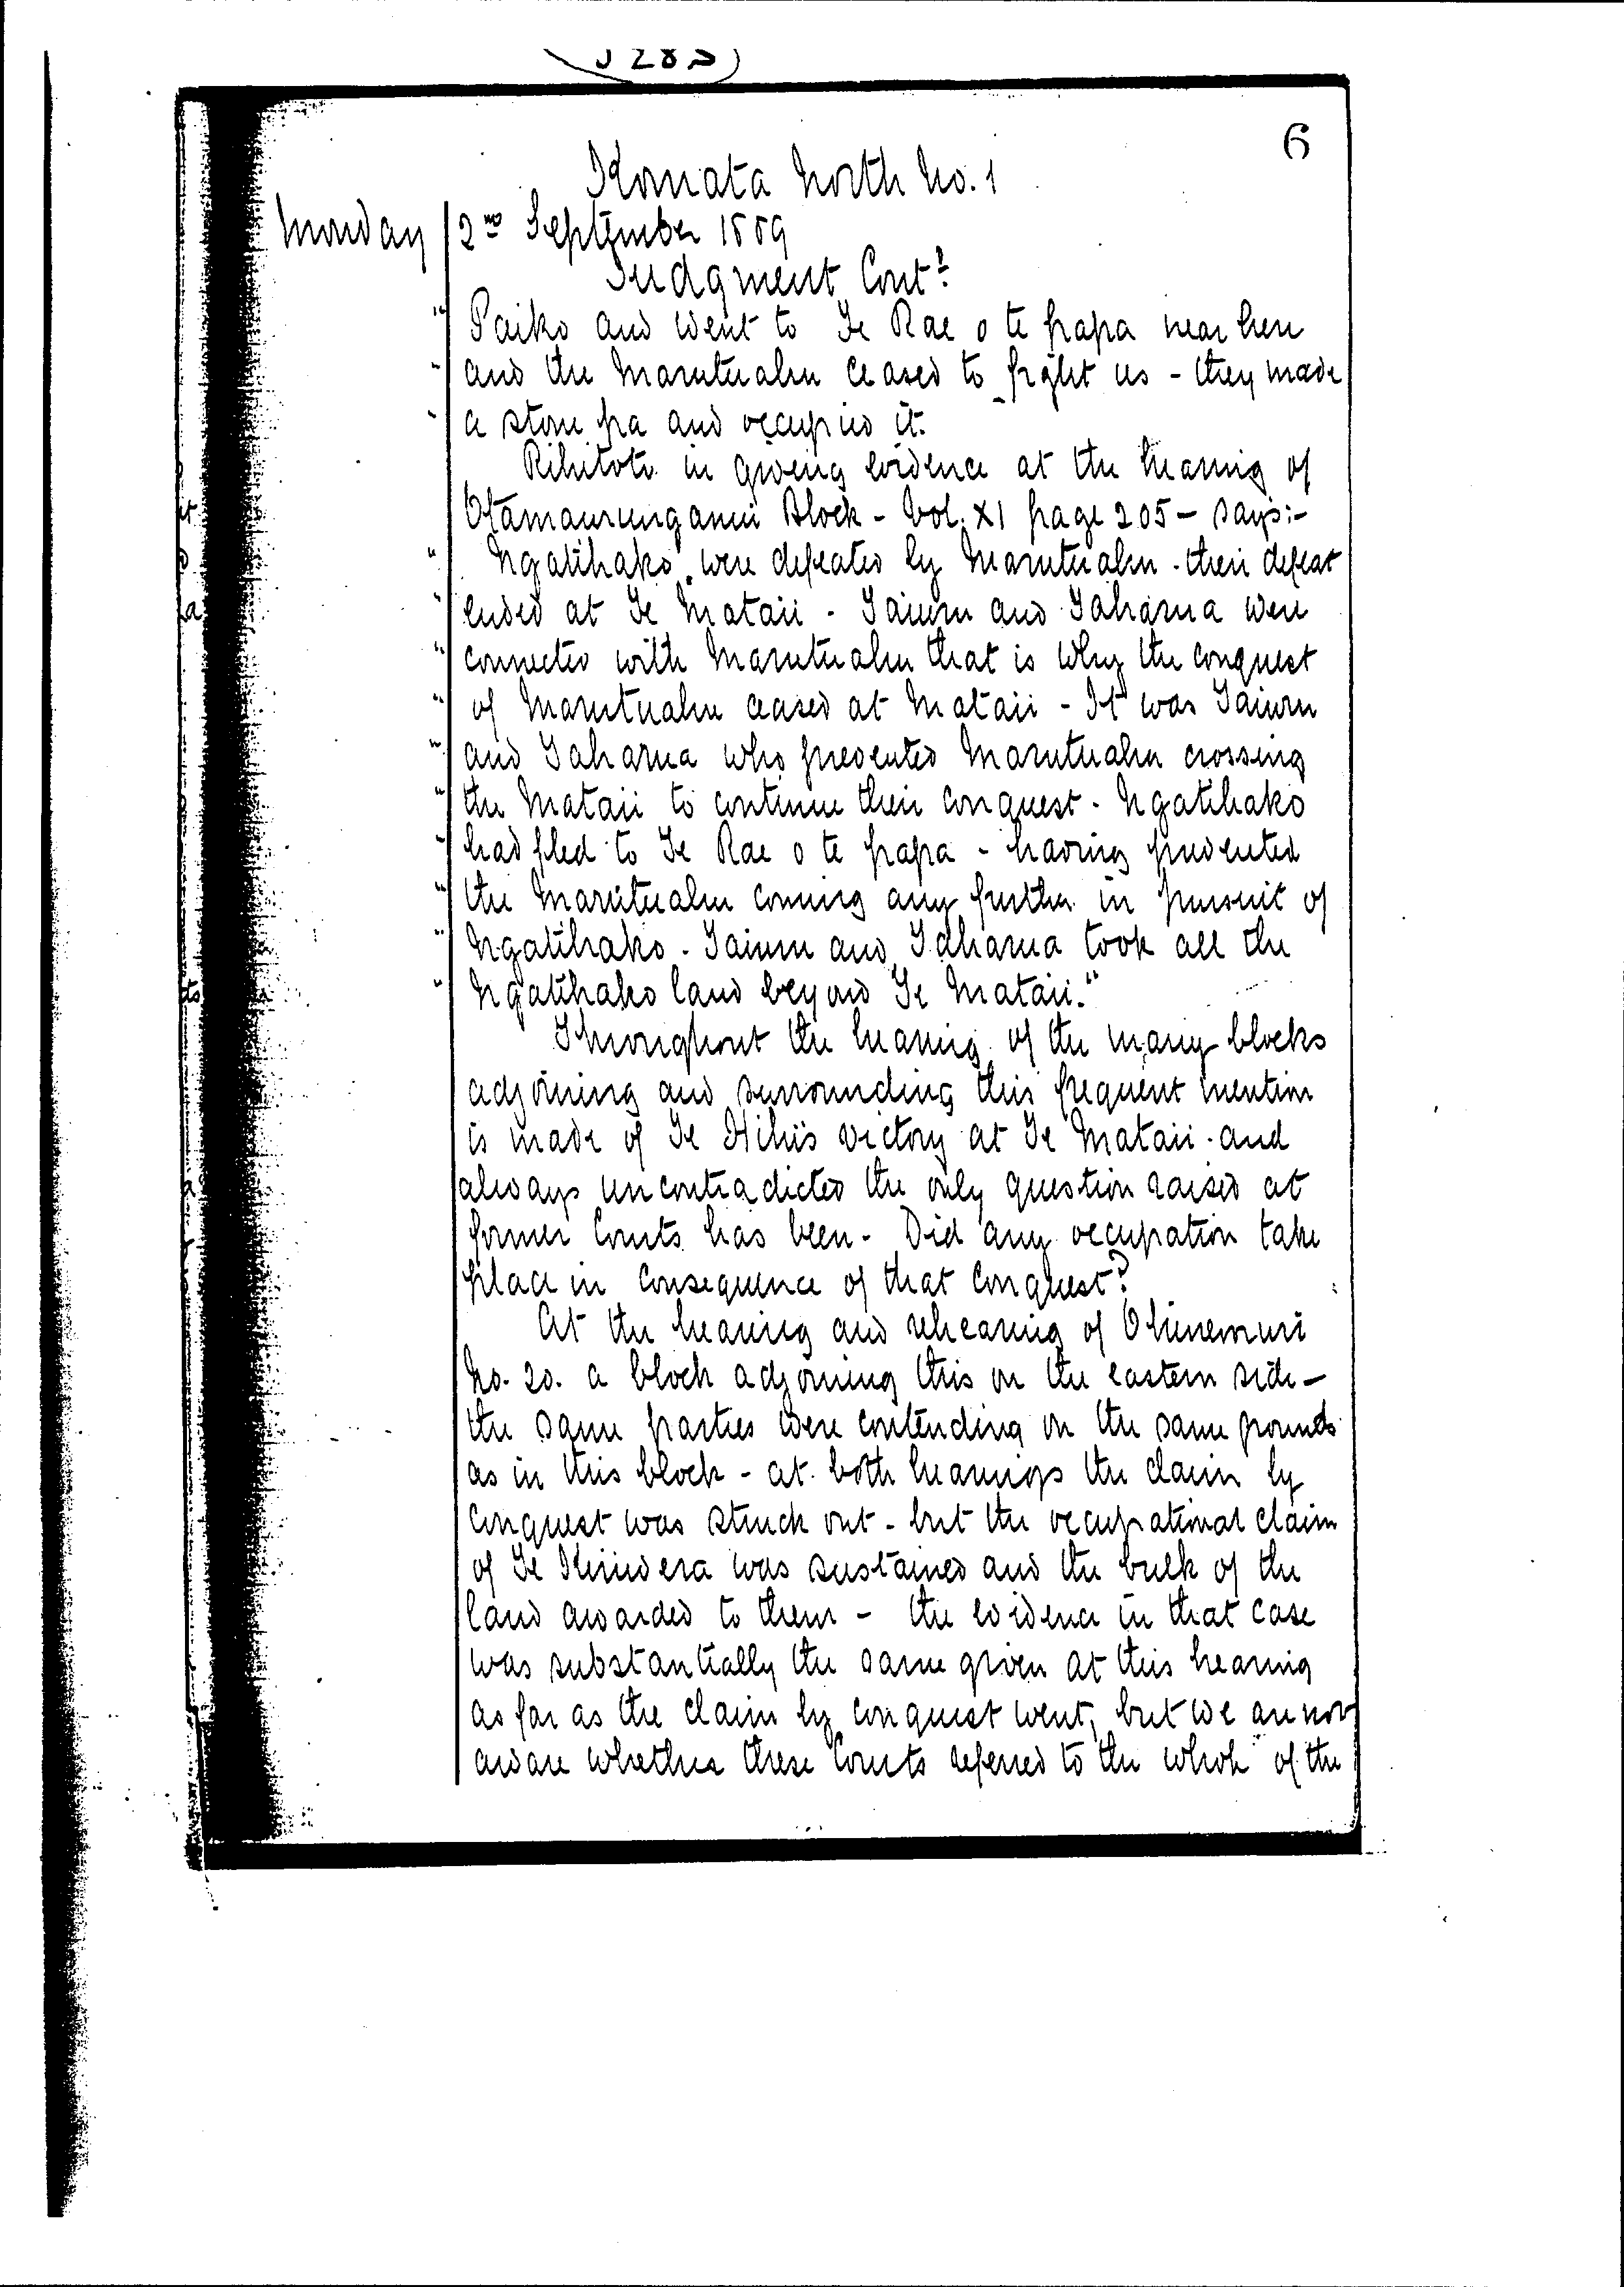 6
Komata North No. 1
Monday 2nd September 1889
Judgment Contd
" Paiko and went to Te Rae o te papa near here
" and the Marutuahu ceased to fight us - they made
" a stone pa and occupied it.
Rihitoto in giving evidence at the hearing of
Block - Vol. XI page 205 - says:-
" Ngatihako were defeated by Marutuahu - their defeat
" ended at Te Mataii - Taiuru and Taharua were
" connected with Marutuahu that is why the conquest
" of Marutuahu ceased at Mataii - It was Taiuru
" and Taharua who prevented Marutuahu crossing
" the Mataii to continue their conquest - Ngatihako
" had fled to Te Rae o te papa - having prevented
" the Marutuahu coming any further in pursuit of
" Ngatihako - Taiuru and Taharua took all the
" Ngatihako land beyond Te Mataii."
Throughout the hearing of the many blocks
adjoining and surrounding this frequent mention
is made of Te Hihi's victory at Te Mataii - and
always uncontradicted the only question raised at
former Courts has been - Did any occupation take
place in consequence of that Conquest?
At the hearing and rehearing of Ohinemuri
No. 20. a block adjoining this on the eastern side -
the same parties were contending on the same grounds
as in this block - at both hearings the claim by
Conquest was struck out - but the occupational claim
of Te Kiriwera was sustained and the bulk of the
land awarded to them - the evidence in that case
was substantially the same given at this hearing
as far as the claim by conquest went, but we are not
aware whether these Courts referred to the whole of the